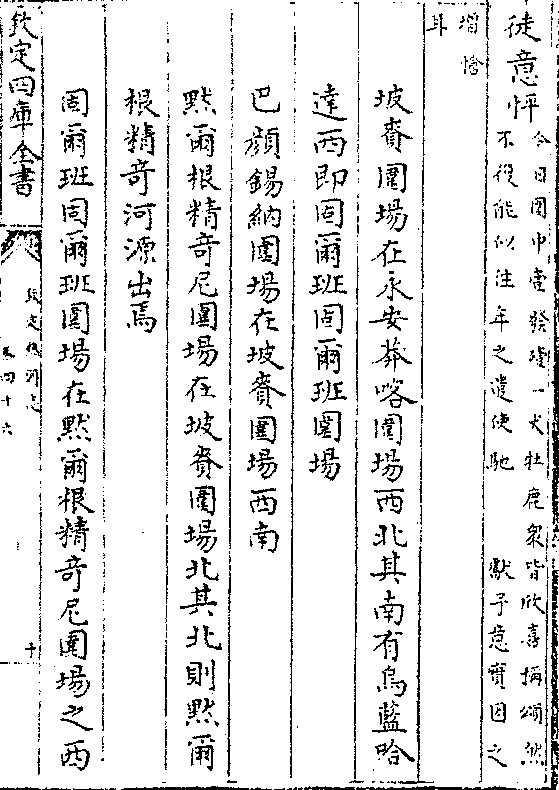 徒意怦
今日圍中壹發殪一大牡鹿衆皆欣喜稱頌然
不復能似往年之遣使馳　　獻予意實因之
增愴
耳
坡賚圍場在永安莽喀圍場西北其南有烏藍哈
達西即固爾班固爾班圍場
巴顔錫納圍場在坡賚圍場西南
默爾根精奇尼圍場在坡賚圍場北其北則默爾
根精奇河源出焉
固爾班固爾班圍場在默爾根精奇尼圍場之西
欽定四庫全書
欽定熱河志
卷四十六
十